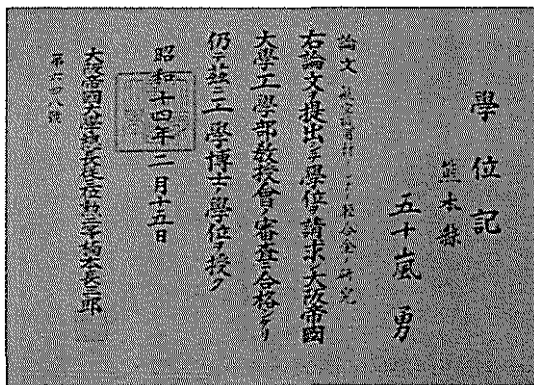 學位記
熊本縣
五十嵐 勇
論文 航空機材料トシテノ輕合金ノ研究
右論文ヲ提出シテ學位ヲ請求シ大阪帝國
大學工學部教授會ノ審査ニ合格セリ
仍テ茲ニ工學博士ノ學位ヲ授ク
昭和十四年二月十五日
大阪帝國大學總長從三位勳二等楠本長三郎